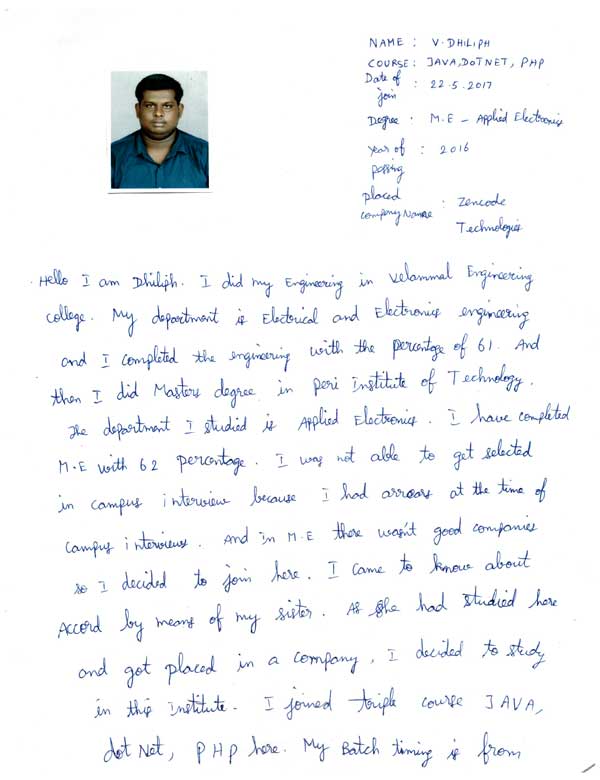 NAME : V. DHILIPH
COURSE : JAVA, DOTNET, PHP
Date of join : 22.5.2017
Degree : M.E - Applied Electronics
Year of passing : 2016
placed company Name : Zencode Technologies
Hello I am Dhiliph. I did my Engineering in Velammal Engineering
college. My department is Electrical and Electronics engineering
and I completed the engineering with the percentage of 61. And
then I did Masters degree in Peri Institute of Technology.
The department I studied is Applied Electronics. I have completed
M.E with 62 percentage. I was not able to get selected
in campus interview because I had arrears at the time of
campus interviews. And in M.E there wasn't good companies
so I decided to join here. I came to know about
Accord by means of my sister. As she had studied here
and got placed in a company, I decided to study
in this Institute. I joined triple course JAVA,
dot Net, PHP here. My Batch timing is from